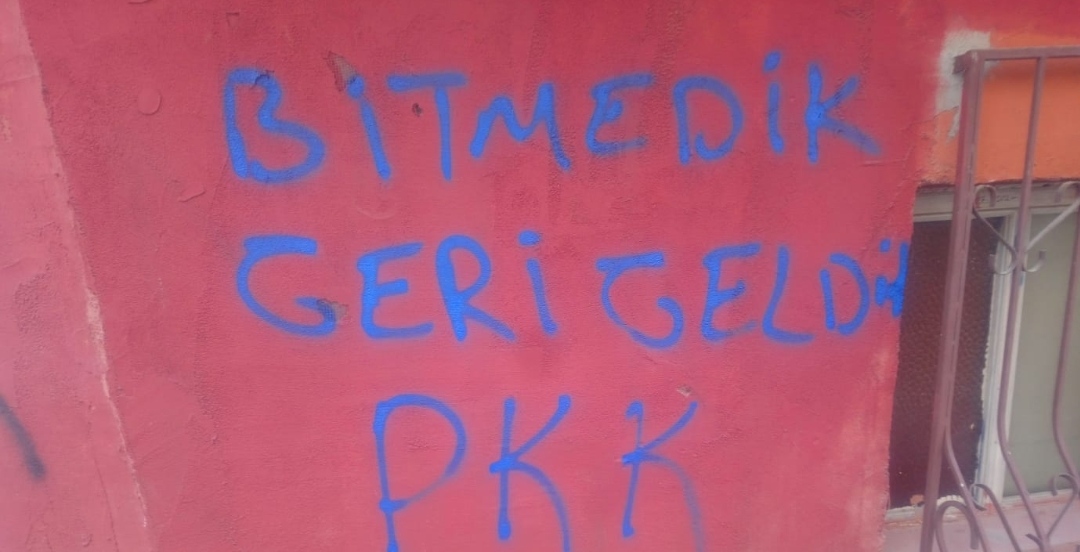 BİTMEDİK
GERİ GELDİK
PKK